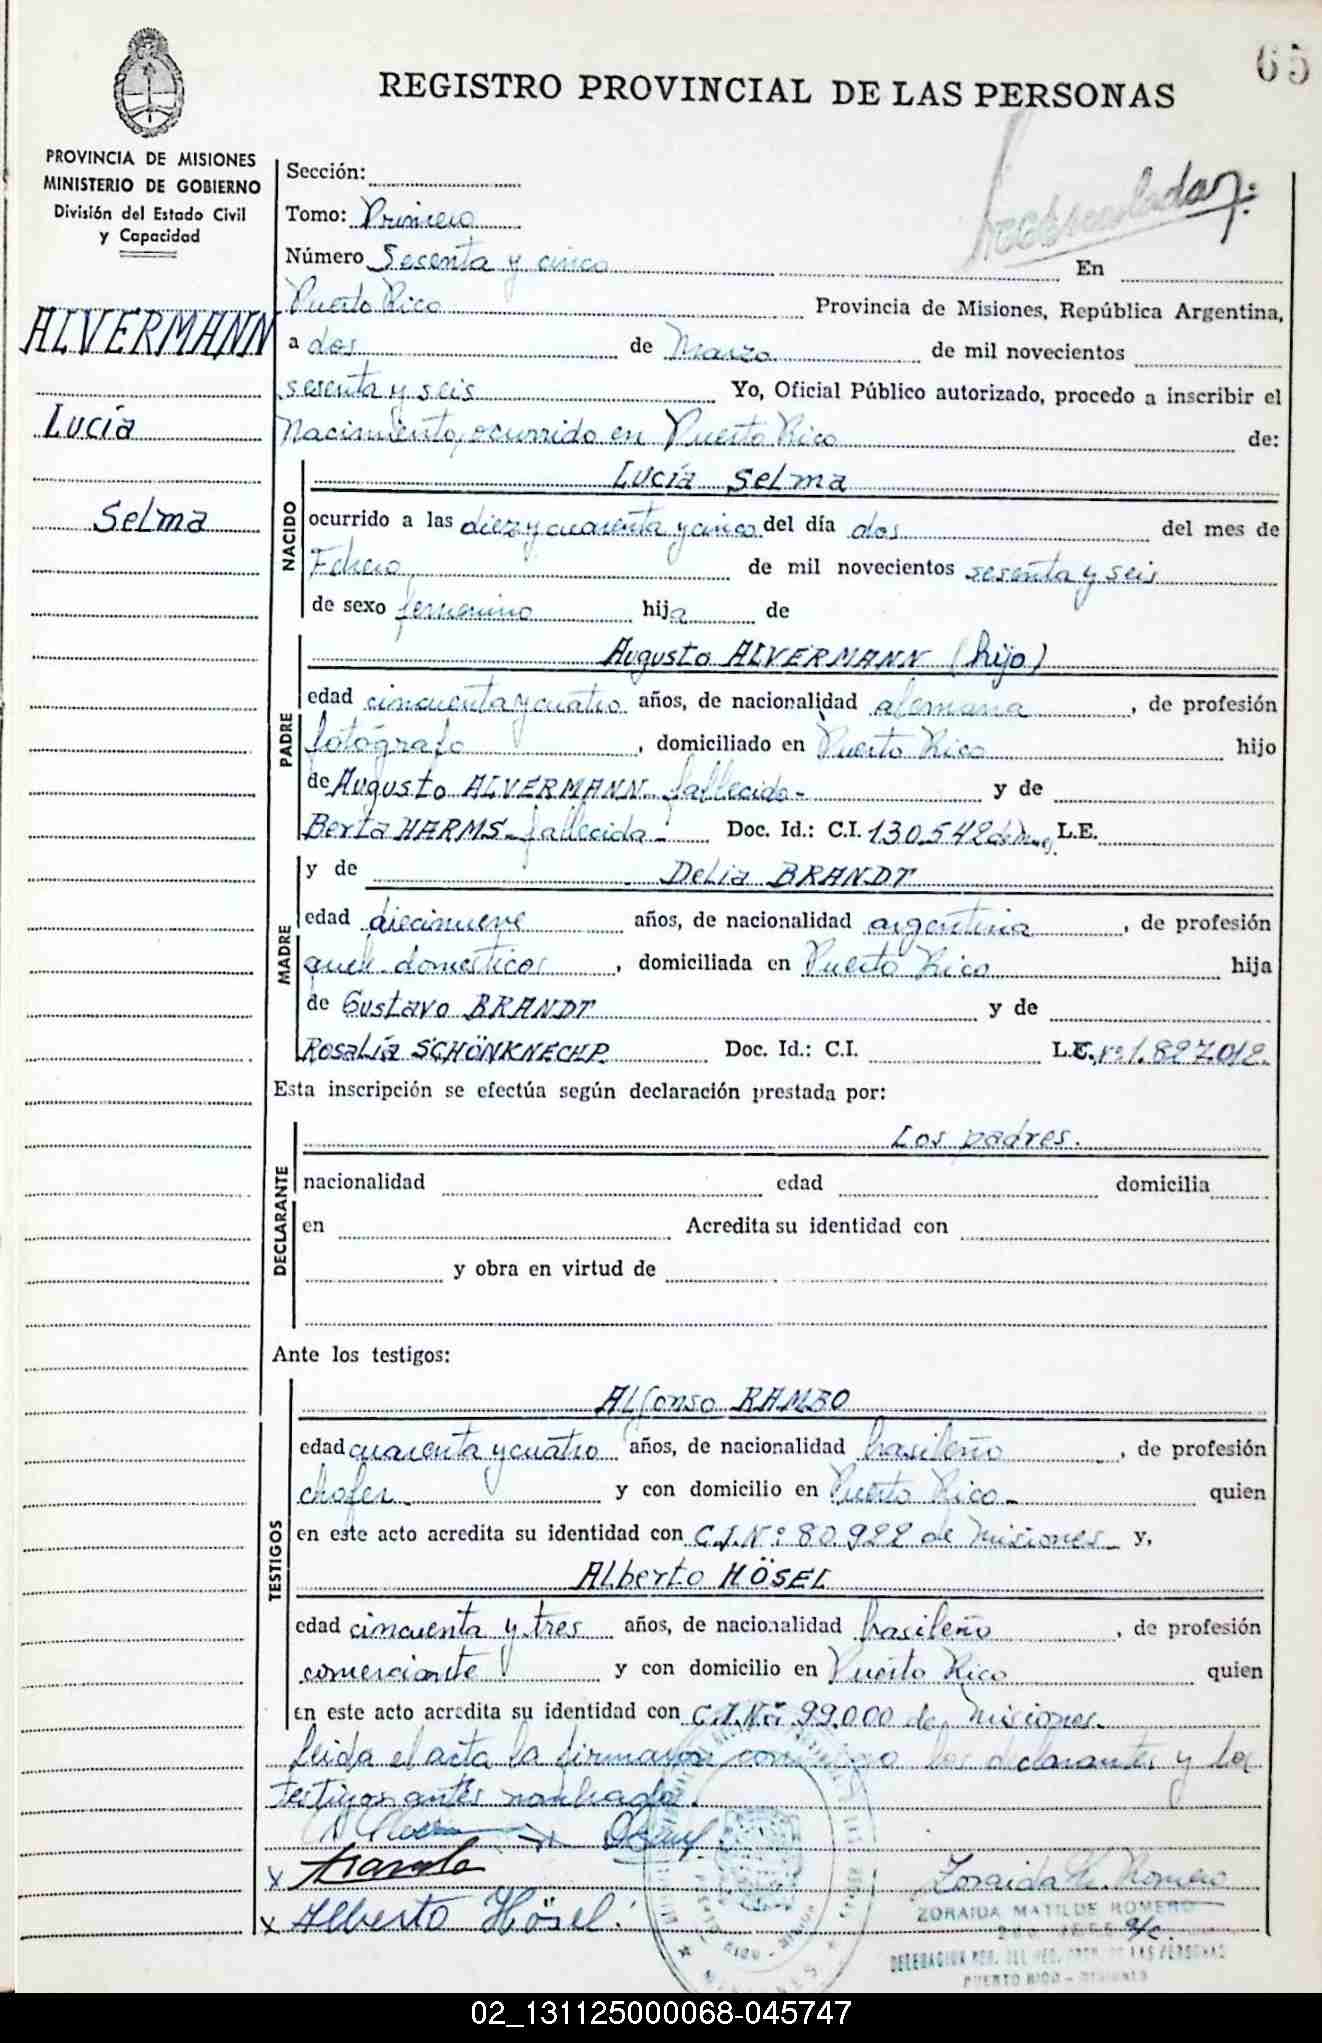 65
REGISTRO PROVINCIAL DE LAS PERSONAS
PROVINCIA DE MISIONES
MINISTERIO DE GOBIERNO
División del Estado Civil
y Capacidad
Sección:
Tomo: Primero
Número Sesenta y cinco En
Puerto Rico Provincia de Misiones, República Argentina,
ALVERMANN
a dos de Marzo de mil novecientos
sesenta y seis Yo, Oficial Público autorizado, procedo a inscribir el
Lucía
Nacimiento, ocurrido en Puerto Rico de:
Lucía Selma
Selma
NACIDO
ocurrido a las diez y cuarenta y cinco del día dos del mes de
Febrero de mil novecientos sesenta y seis
de sexo femenino hija de
Augusto ALVERMANN (hijo)
PADRE
edad cincuenta y cuatro años, de nacionalidad alemana, de profesión
fotógrafo, domiciliado en Puerto Rico hijo
de Augusto ALVERMANN fallecido- y de
Berta HARMS-fallecida- Doc. Id.: C.I. 130.542 L.E.
y de Delia BRANDT
MADRE
edad diecinueve años, de nacionalidad argentina, de profesión
queh. domésticos, domiciliada en Puerto Rico hija
de Gustavo BRANDT y de
Rosalía Doc. Id.: C.I. L.C. nº 1.827.012.
Esta inscripción se efectúa según declaración prestada por:
Los padres.
DECLARANTE
nacionalidad edad domicilia
en Acredita su identidad con
y obra en virtud de
Ante los testigos:
Alfonso RAMBO
TESTIGOS
edad cuarenta y cuatro años, de nacionalidad brasileño, de profesión
chofer- y con domicilio en Puerto Rico- quien
en este acto acredita su identidad con C.I.Nº: 80.922 de Misiones- y,
Alberto HÖSEL
edad cincuenta y tres años, de nacionalidad brasileño, de profesión
comerciante y con domicilio en Puerto Rico quien
en este acto acredita su identidad con C.I.Nº: 99.000 de Misiones.
Leida el acta la firmaron conmigo los declarantes y los
testigos antes nombrados.
X
X Alberto Hösel.
Zoraida M. Romero
ZORAIDA MATILDE ROMERO
DELEGACION REG. DEL REG. PROV. DE LAS PERSONAS
PUERTO RICO - MISIONES
02_131125000068-045747